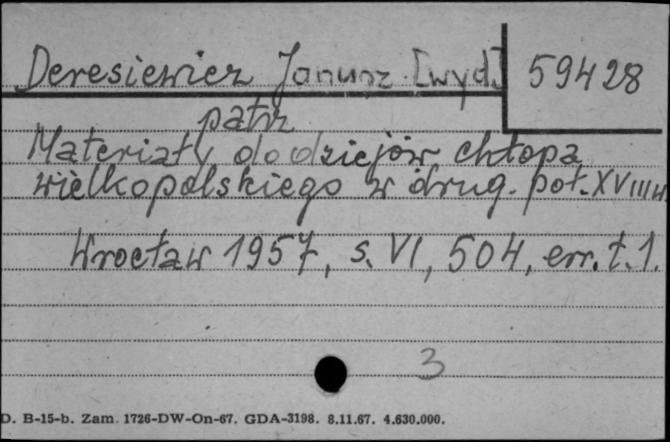 Deresiewicz Janusz [wyd.] 59428
patrz
Materiały do dziejów chłopa
wielkopolskiego w drug. poł. XVIII w.
Wrocław 1957, s. VI, 504, err. t. 1.
3
D. B-15-b. Zam. 1726-DW-On-67. GDA-3198. 8.11.67. 4.630.000.